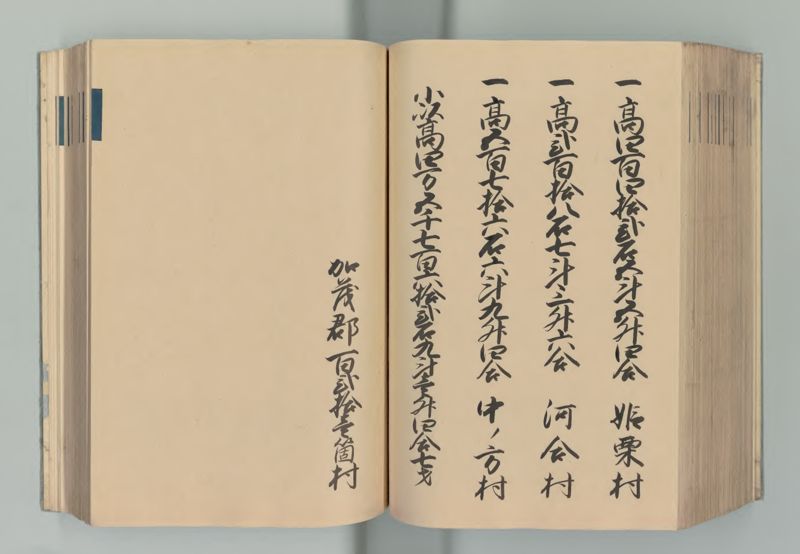 一高四百四拾弐石五斗五升四合 姫栗村
一高弐百拾八石七斗三升六合 河合村
一高五百七拾六石六斗九升四合 中ノ方村
小以高四万五千七百六拾弐石九斗壱升四合七才
加茂郡百弐拾壱箇村